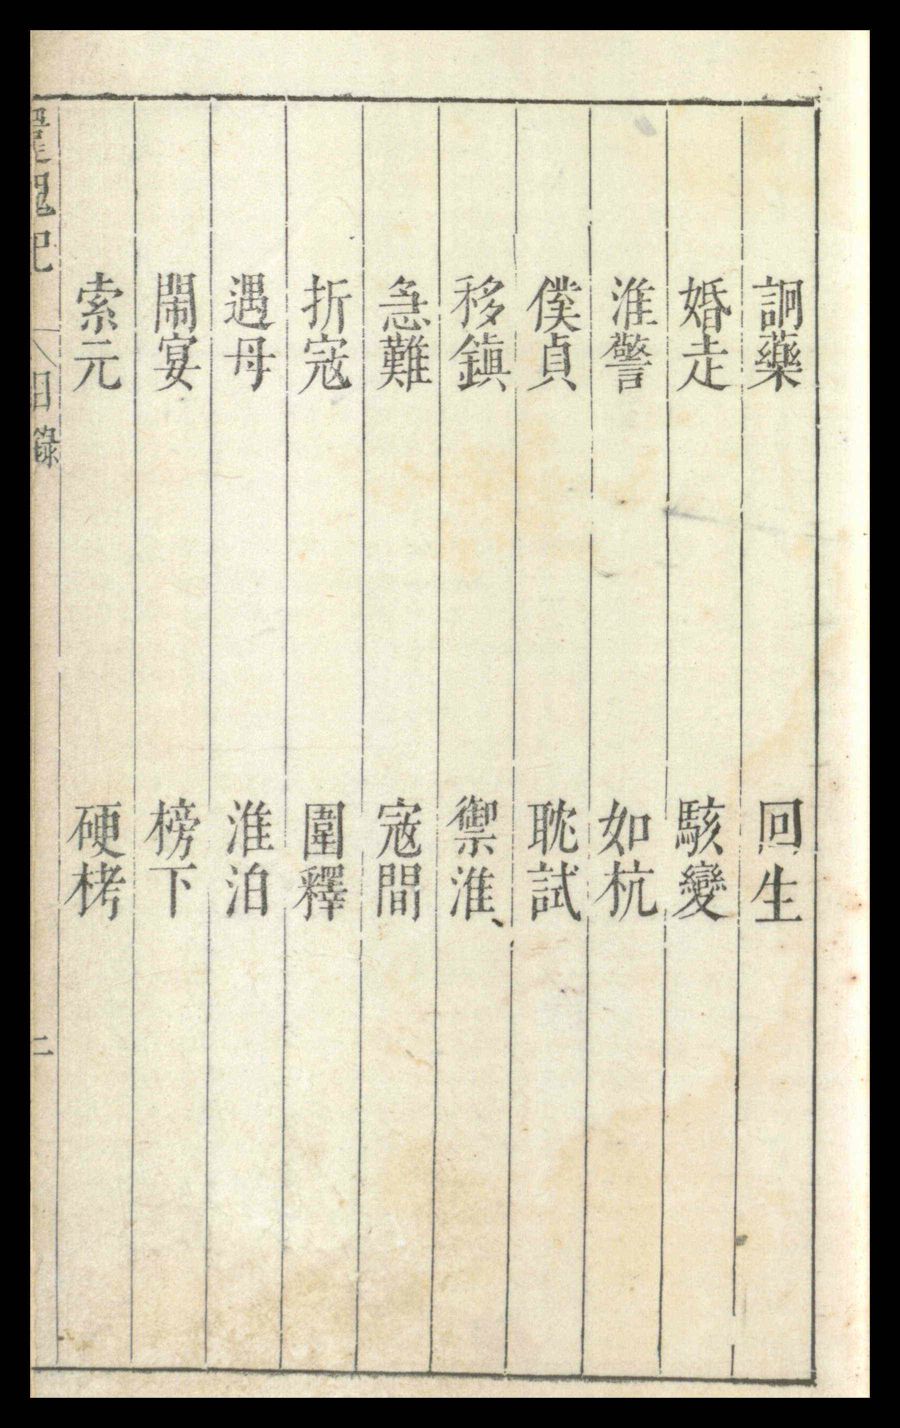 詗藥　回生
婚走　駭變
淮警　如杭
僕貞　耽試
移鎮　禦淮
急難　寇間
折寇　圍釋
遇母　淮泊
閙宴　榜下
索元　硬拷
還魂記　目錄　二